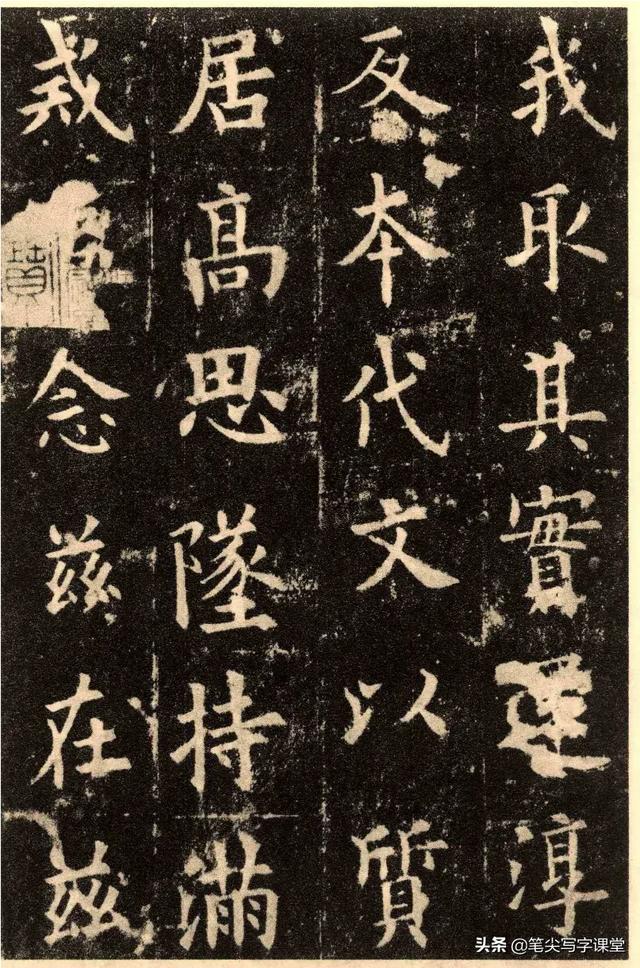 我取其實還淳
反本代文以質
居高思墜持滿
戒念兹在兹
头条 @笔尖写字课堂